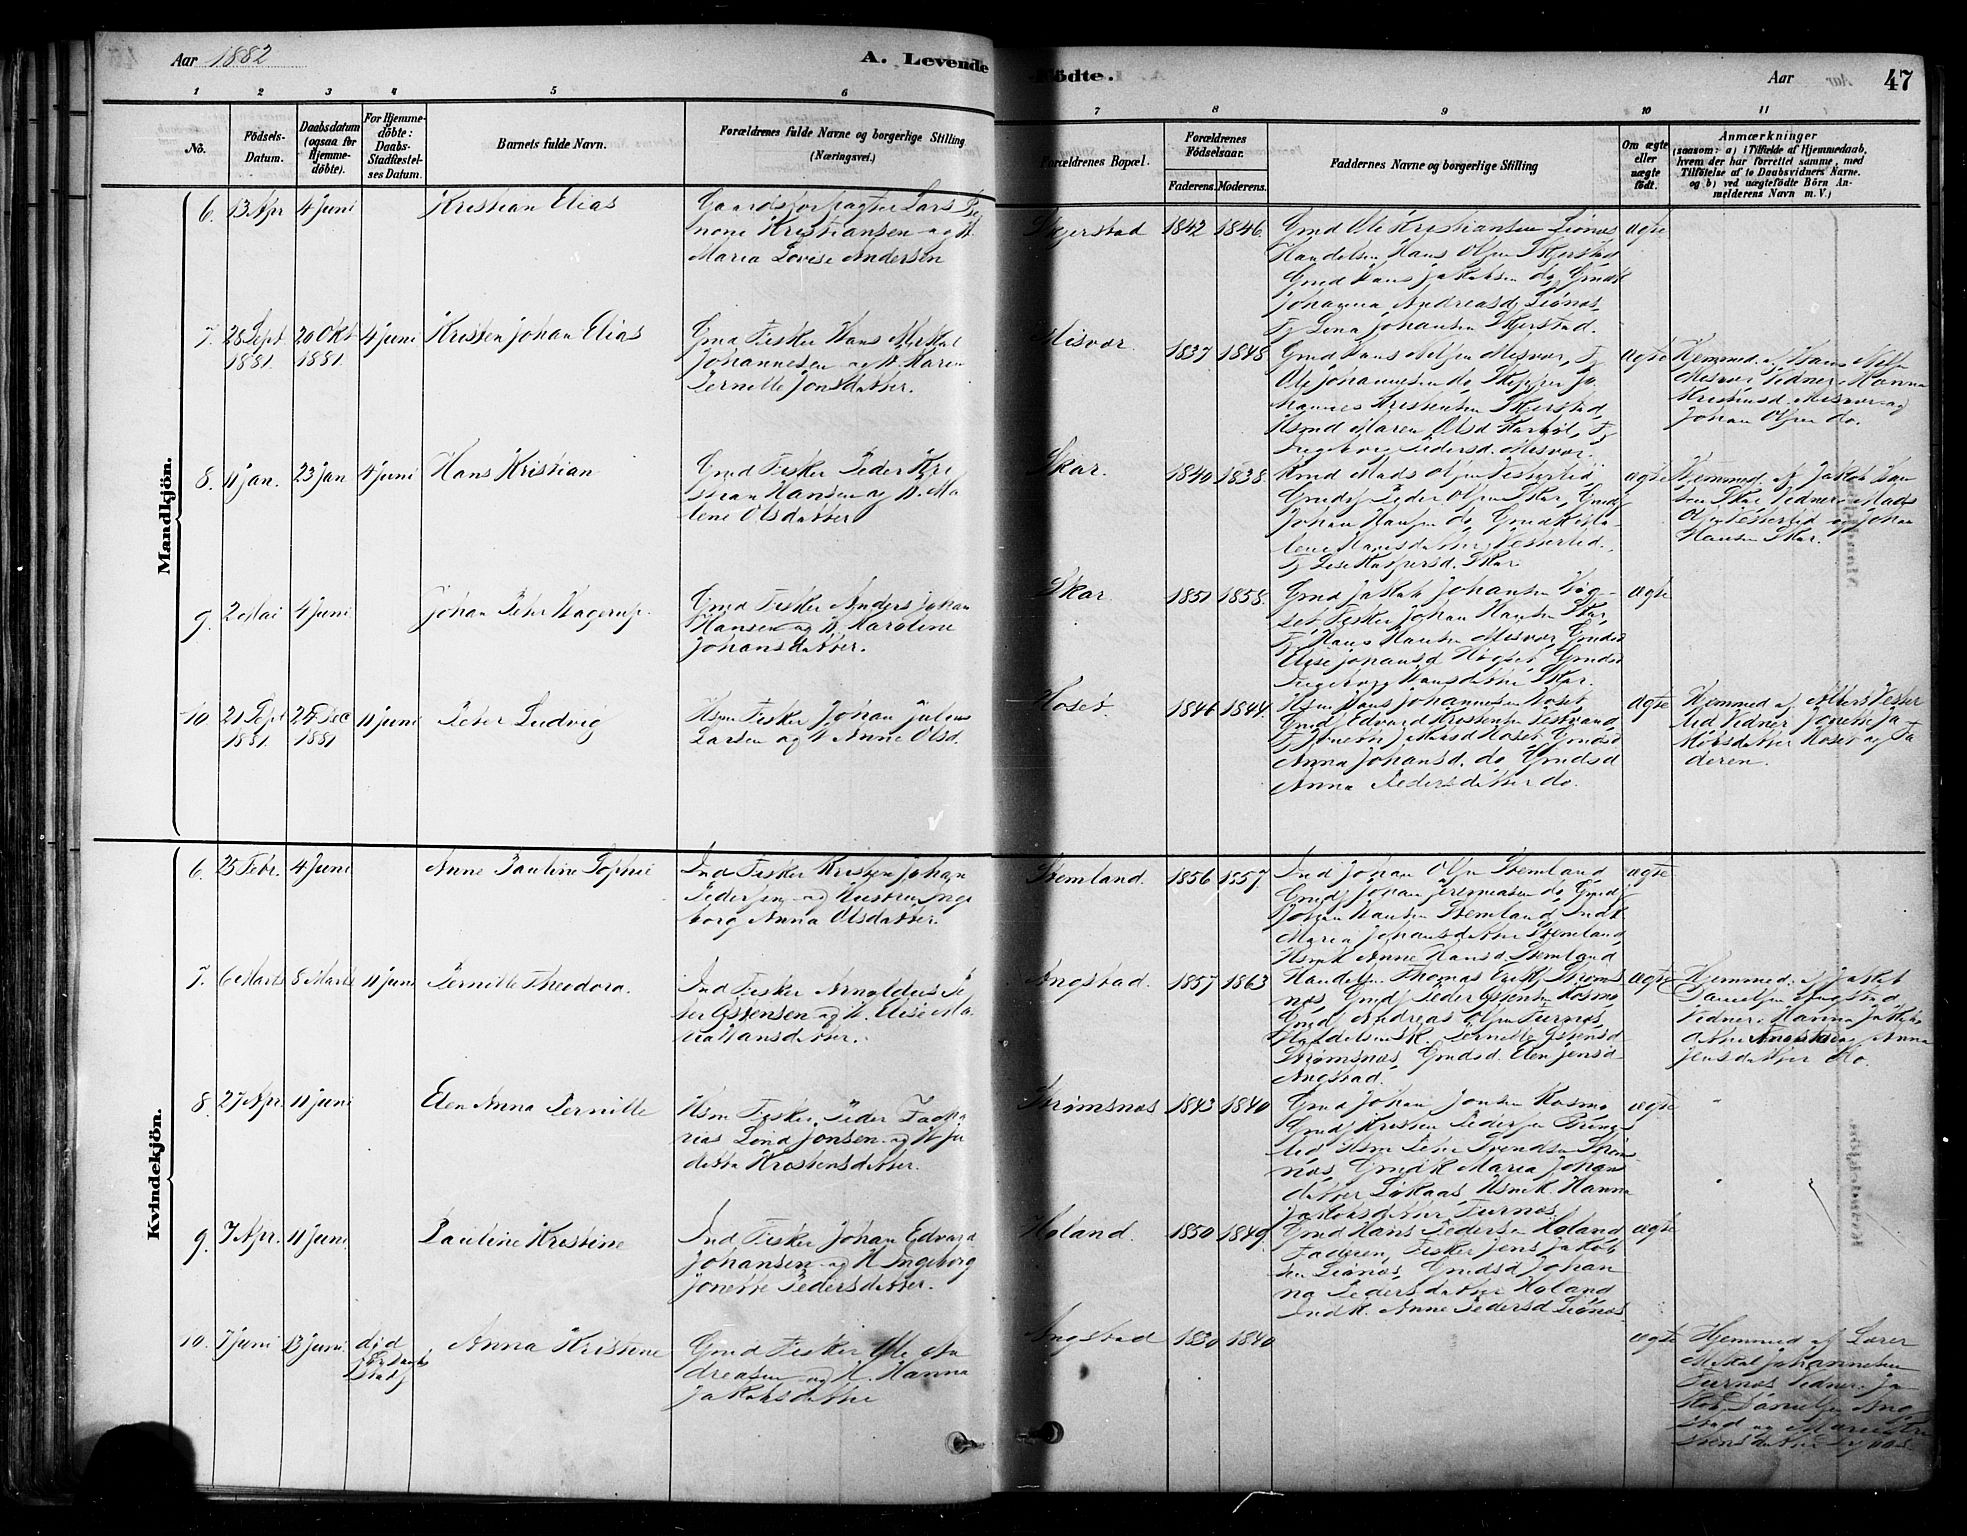 Aar 1882
A. Levende
Födte.
Aar
47
1 2 3 4 5 6 7 8 9 10 11
No.
Födsels-
Datum.
Daabsdatum
(ogsaa for
Hjemme-
döbte).
For Hjemme-
döbte:
Daabs-
Stadfæstel-
ses Datum.
Barnets fulde Navn.
Forældrenes fulde Navne og borgerlige Stilling
(Næringsvei.)
Forældrenes Bopæl.
Forældrenes
Födselsaar.
Faderens. Moderens.
Faddernes Navne og borgerlige Stilling
Om ægte
eller
uægte
födt.
Anmærkninger
(saasom: a) i Tilfælde af Hjemmedaab,
hvem der har forrettet samme, med
Tilföielse af to Daabsvidners Navne.
og b) ved uægtefödte Börn An-
melderens Navn m. V.)
Mandkjön.
6. 13 Apr 4 Juni
Kristian Elias
Gaardsforpagter Lars
Kristiansen og H.
Maria Lovise Andersen
Skjerstad
1842 1846
Gmd Ole Kristiansen Liönes
Handelsm Hans Olsen Skjerstad
Gmd Hans Jakobsen do, Gmdk
Johanna Andreasd Liönes,
Lena Johansen Skjerstad.
ægte
7. 28 Sept
1881
20 Okt
1881
4 Juni
Kristen Johan Elias
Gmd Fisker Hans Merkel
Johannesen og H. Maren
Pernille Jonsdatter.
Misvær.
1837 1848
Gmd Hans Nilsen Misvær,
Ole Johannesen do, Skipper Jo
hannes Kristensen Skjerstad,
Maren Olsd
Ingeborg Pedersd. Misvær.
ægte
Hemmed. af Hans Nils
Misvær Vidner Hanna
Kristiansd. Misvær og
Johan Olsen do.
8. 11 Jan. 23 Jan 4 Juni
Hans Kristian
Gmd Fisker Peder Kri
stian Hansen og H. Ma
lene Olsdatter
Skar.
1840 1838
Gmd Mads Olsen Vesterlid
Gmds Peder Olsen Skar, Gmds
Johan Hansen do, Gmdk Ma
lene Hansdatter Vesterlid,
Lise Kaspersd. Skar
ægte
Hemmed. af Jakob Han
sen Skar Vidner Mads
Olsen Vesterlid og Johan
Hansen Skar.
9. 2 Mai 4 Juni
Johan Peter Hagerup.
Gmd Fisker Anders Johan
Hansen og H. Karoline
Johansdatter.
Skar
1851 1858.
Gmd Jakob Johansen Høg-
set Fisker Johan Hansen Skar
Hans Hansen Misvær, Gmdsd
Elise Johansd Høgset, Gmdsd
Ingeborg Hansdatter Skar.
ægte
10. 21 Sept
1881
27 Dec
1881
11 Juni
Peter Ludvig
Hsm Fisker Johan Julius
Larsen og H Anne Olsd.
Hoset.
1846 1844.
Hsm Hans Johannesen Hoset
Gmds Edvard Kristensen
Hoset Gmdsd
Anna Johansd. do Gmdsd
Anna Pedersdatter do.
ægte
Hemmed af Albert Vester
lid Vidner Jonette Ja
kobsdatter Hoset og Fa
deren.
Kvindekjön.
6. 25 Febr. 4 Juni
Anne Pauline Sophie
Ind Fisker Kristen Johan
Pedersen og Hustru Inge
borg Anna Olsdatter.
Stemland.
1856 1857
Ind Johan Olsen Stemland
Gmds Johan Jeremiasen do, Gmds
Johan Hansen Stemland, Indk
Maria Johansdatter Stemland,
Hsmk Anne Hansd Stemland
ægte
7. 6 Marts 8 Marts 11 Juni
Pernille Theodora.
Ind Fisker Arnoldus Pe
ter Estensen og H. Elise Ma
ria Hansdatter.
Angstad.
1857 1863
Handelsm Thomas Strøms
nes, Gmds Peder Estensen Kosmo
Gmds Andreas Olsen Furnes,
Handelsm K. Pernille Estensd
Strømsnes, Gmdsd. Elen Jensd
Angstad.
ægte
Hemmed. af Jakob
Danielsen Angstad
Vidner: Hanna Jakobs
datter Angstad og Anna
Jensdatter do
8. 27 Apr. 11 Juni
Elen Anna Pernille
Hsm Fisker Peder Zacha
rias Lind Jonsen og H. Ju
ditta Kristensdatter.
Strømsnes
1843 1840
Gmd Johan Jonsen Kosmo
Gmds Kristen Pedersen
lid Hsm Peder Svendsen Strøms
nes, Gmdk Maria Johans
datter Løkaas, Hsmk. Hanna
Jakobsdatter Furnes
ægte
"
9. 7 Apr. 11 Juni
Pauline Kristine
Ind Fisker Johan Edvard
Johansen og H Ingeborg
Jonette Pedersdatter.
Holand.
1850 1849
Gmd Hans Pedersen Holand
Faderen, Fisker Jens Jakob
sen Liönes, Gmdsd Johan
na Pedersdatter Holand
Indk. Anne Pedersd Liönes
ægte
"
10. 7 Juni 13 Juni
død
før Daabs
Stadf
Anna Kristine
Gmd Fisker Ole An
dreasen og H. Hanna
Jakobsdatter
Angstad
1830 1840
ægte
Hjemmed af Lærer
Mikal Johannesen
Furnes Vidner: Ja
kob Danielsen Ang
stad og Maria